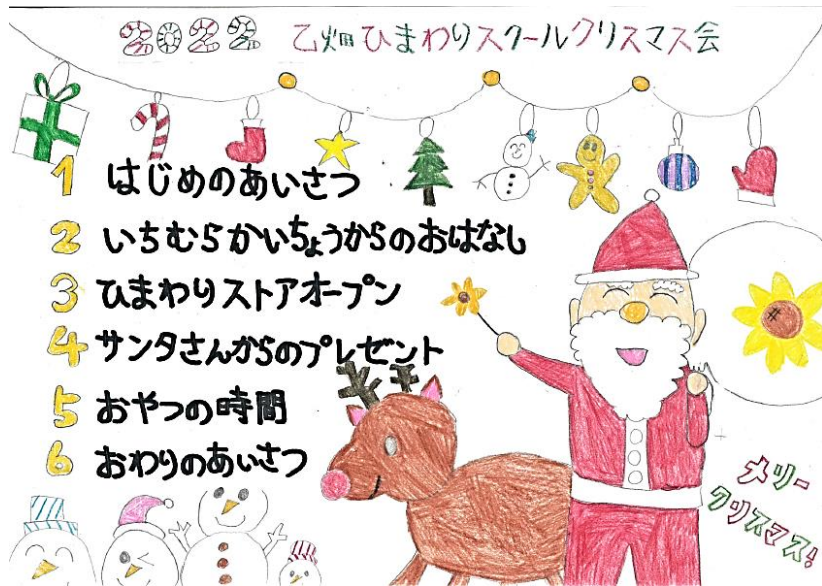 2022 乙畑ひまわりスクールクリスマス会
1 はじめのあいさつ
2 いちむらかいちょうからのおはなし
3 ひまわりストアオープン
4 サンタさんからのプレゼント
5 おやつの時間
6 おわりのあいさつ
メリー
クリスマス!